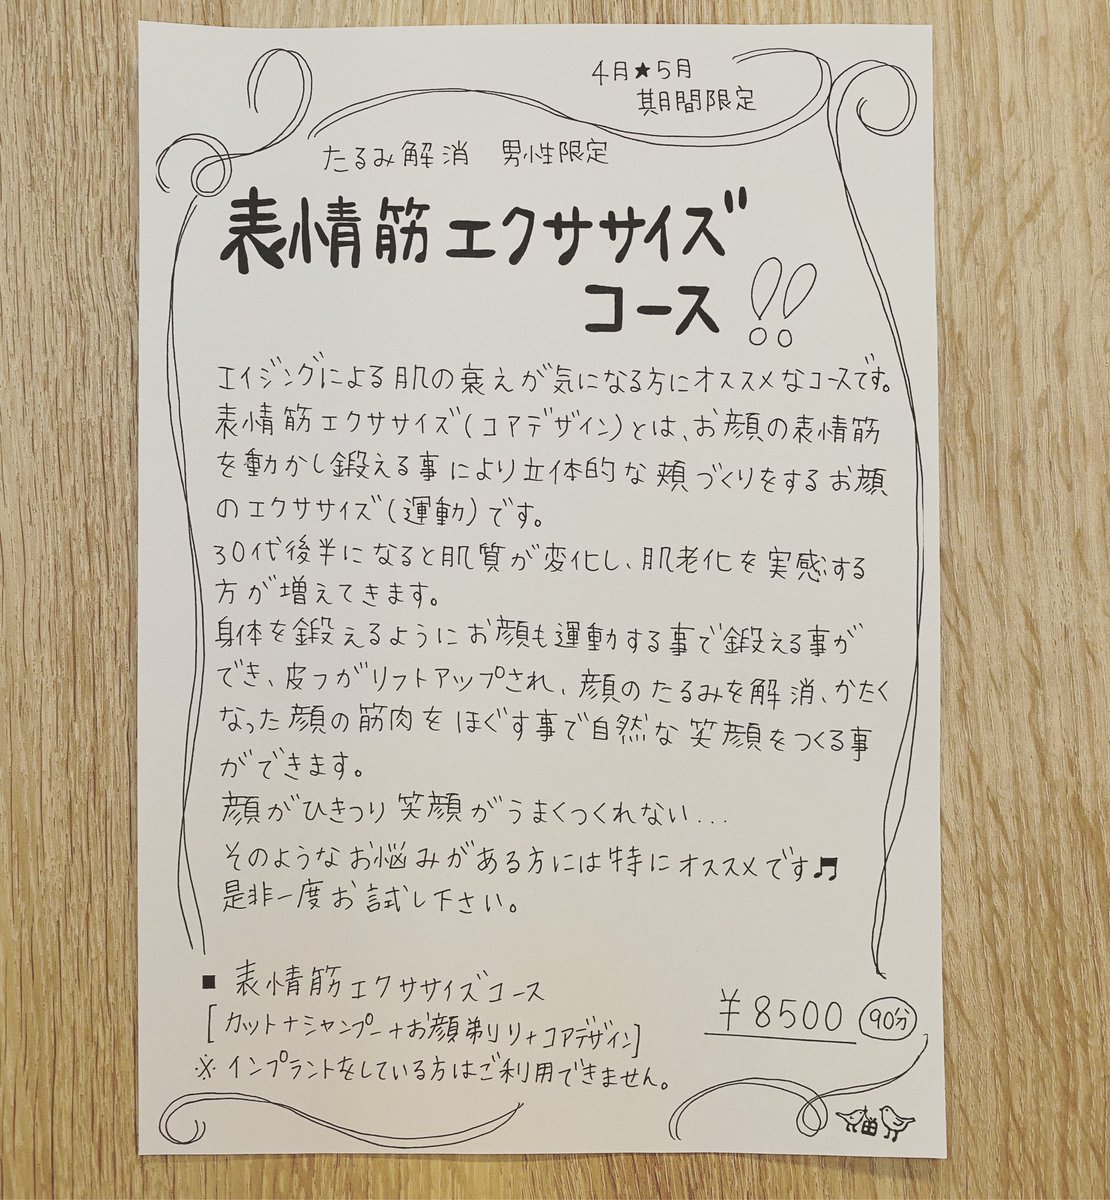 4月★5月
期間限定
たるみ解消 男性限定
表情筋エクササイズ
コース!!
エイジングによる肌の衰えが気になる方にオススメなコースです。
表情筋エクササイズ(コアデザイン)とは、お顔の表情筋
を動かし鍛える事により立体的な頬づくりをするお顔
のエクササイズ(運動)です。
30代後半になると肌質が変化し、肌老化を実感する
方が増えてきます。
身体を鍛えるようにお顔も運動する事で鍛える事が
でき、皮フがリフトアップされ、顔のたるみを解消、かたく
なった顔の筋肉をほぐす事で自然な笑顔をつくる事
ができます。
顔がひきつり笑顔がうまくつくれない...
そのようなお悩みがある方には特にオススメです♬
是非一度お試し下さい。
■ 表情筋エクササイズコース
[カット+シャンプー+お顔剃り+コアデザイン]
¥8500 90分
※インプラントをしている方はご利用できません。